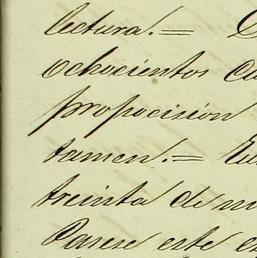 lectura.=
ochocientos
proposicion
tamen.=
treinta de
Parese este